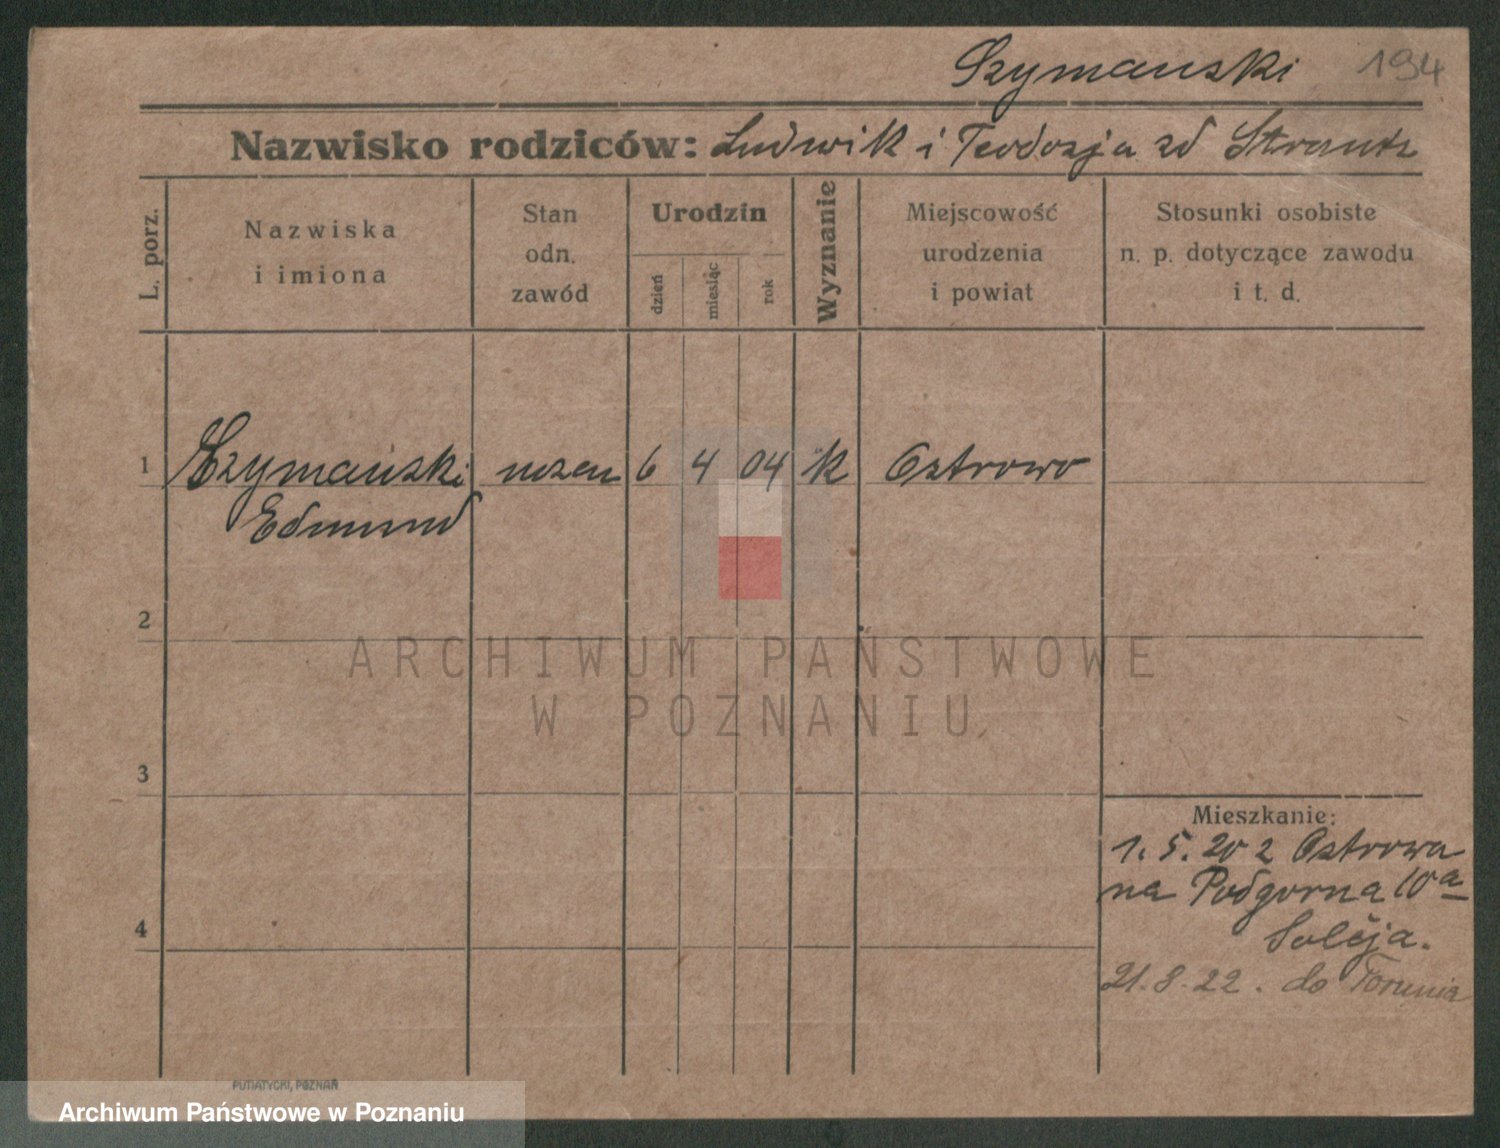 Szymanski 194
Nazwisko rodziców: Ludwik i Teodozja zd
L. porz.
Nazwiska
i imiona
Stan
odn.
zawód
Urodzin
dzień
miesiąc
rok
Wyznanie
Miejscowość
urodzenia
i powiat
Stosunki osobiste
n. p. dotyczące zawodu
i t. d.
1 Szymański uczen 6 4 04 k Ostrowo
Edmund
2
ARCHIWUM PAŃSTWOWE
W POZNANIU
3
Mieszkanie:
1. 5. 20 z Ostrowa
na Podgorna 10a
4
21. 8. 22. do Torunia
PUTIATYCKI, POZNAŃ
Archiwum Państwowe w Poznaniu